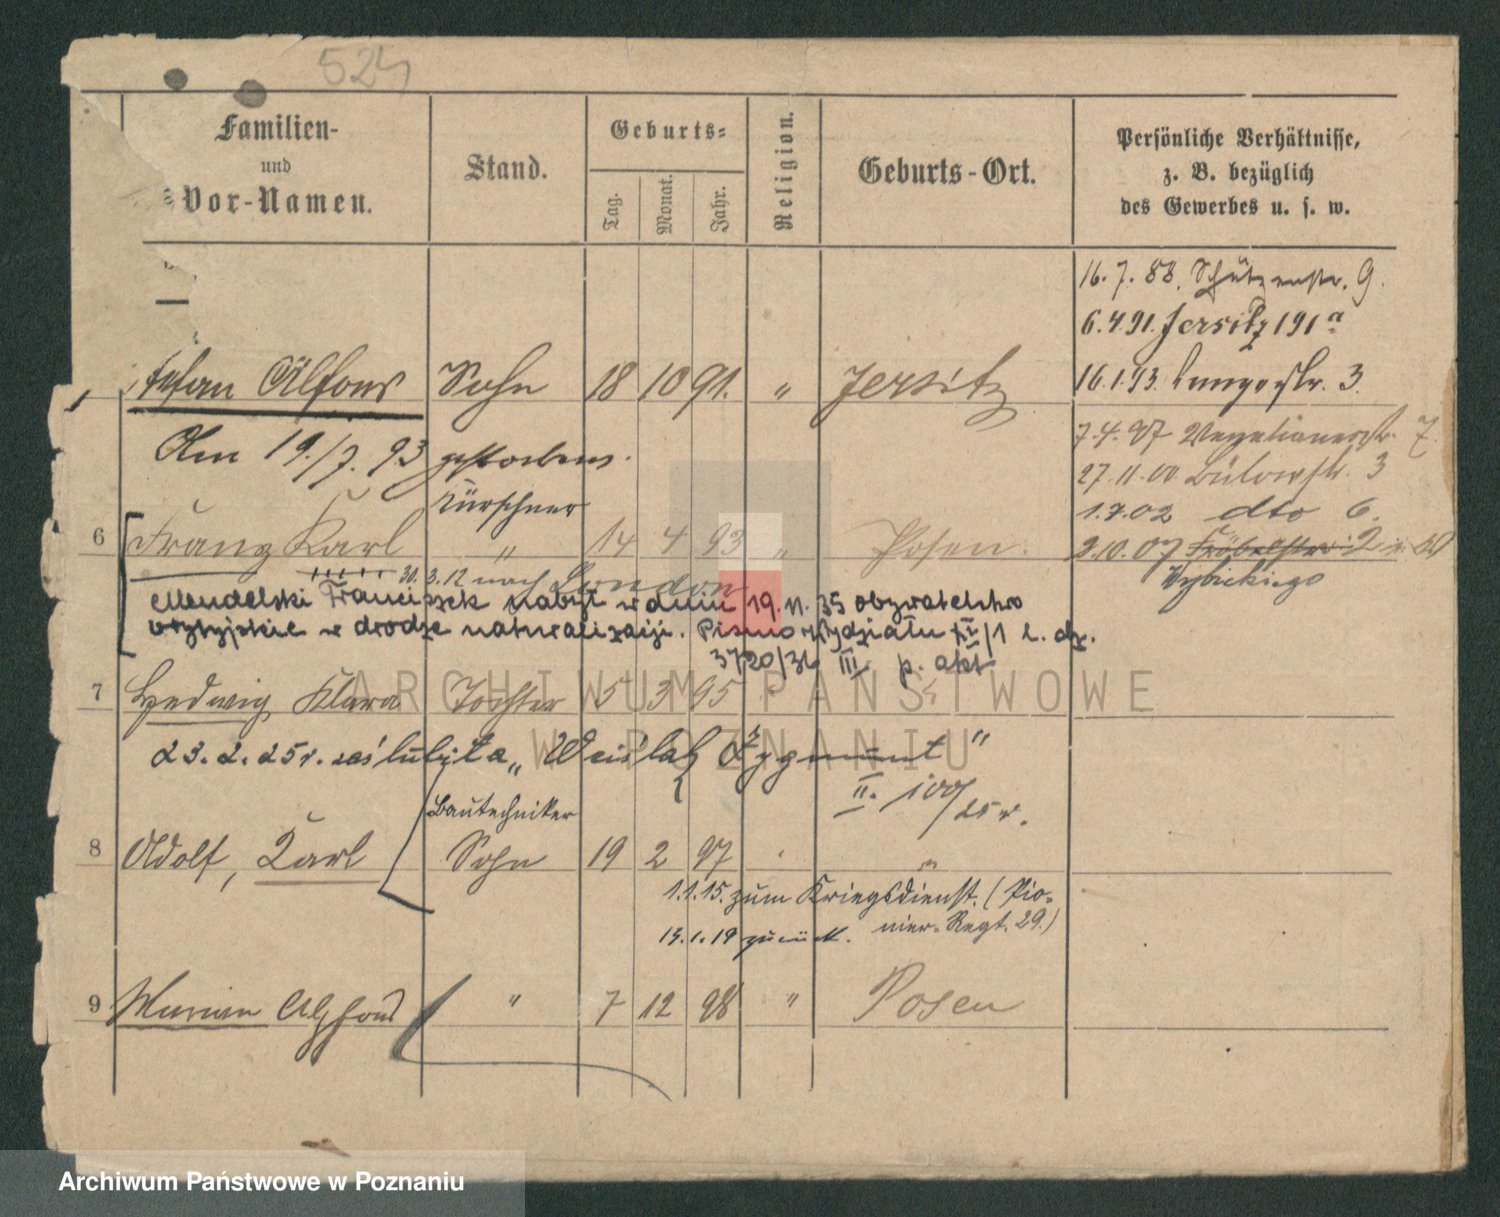 524
Familien-
und
Vor-Namen.
Stand.
Geburts-
Tag.
Monat.
Jahr.
Religion.
Geburts-Ort.
Persönliche Verhältnisse,
z. B. bezüglich
des Gewerbes u. s. w.
16. 7. 88. Schützenstr. 9.
6. 4 91. Jersitz 191 a
Stefan Alfons Sohn 18 10 91. " Jersitz
16. 1. 93. Langestr. 3.
Am 19./7. 93 gestorben.
7. 4. 97 Venetianerstr. 7.
27. 11. 00 Bülowstr. 3
Kürschner
1. 7. 02 dto 6.
6 Franz Karl " 14 4 93 " Posen.
2. 10. 07 Fröbelstr. 2
Wybickiego
30. 3. 12 nach London
Mendelski Franciszek nabył w dniu 19. 11. 35 obywatelstwo
brytyjskie w drodze naturalizacji. Pismo Wydziału II/1 l. dz.
3720/36 III p. akt
7 Hedwig Klara Tochter 5 3 95
23. 2. 25 r. zaślubiła „Cieślak Zygmunt"
II. 100/25 r.
Bautechniker
8 Adolf, Karl Sohn 19 2 97 "
1. 1. 15. zum Kriegsdienst. (Pio-
nier-Regt. 29.)
13. 1. 19 zurück.
9 Marian Alfons " 7 12 98 " Posen
ARCHIWUM PAŃSTWOWE
W POZNANIU
Archiwum Państwowe w Poznaniu